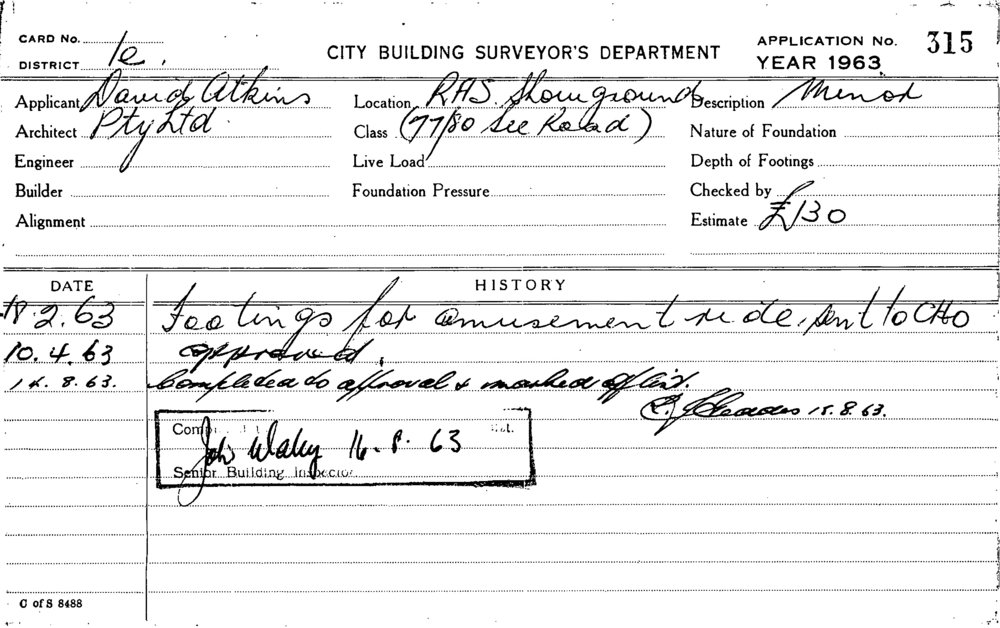 CARD No.
DISTRICT 1e.
CITY BUILDING SURVEYOR'S DEPARTMENT
APPLICATION No. 315
YEAR 1963
Applicant David Atkins
Location RAS. Showground
Description Minor
Architect Pty Ltd.
Class (77/80 See Road)
Nature of Foundation
Engineer
Live Load
Depth of Footings
Builder
Foundation Pressure
Checked by
Alignment
Estimate £130
DATE HISTORY
18.2.63 Footings for amusement ride, sent to CHO
10.4.63 approved.
14.8.63. Completed to approval & marked off list.
15.8.63.
Com
John 16.8.63
Senior Building Inspector
C of S 8488